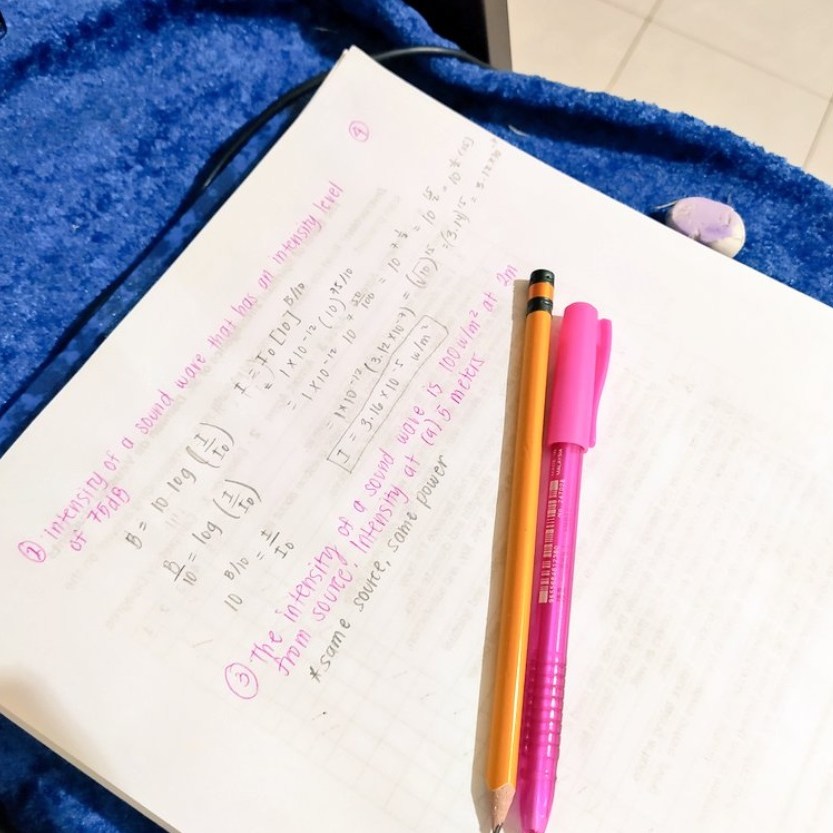 ④
② Intensity of a sound wave that has an intensity level
of 75dB
B = 10 log (I/I₀)
B/10 = log (I/I₀)
10 B/10 = I/I₀
I = I₀ [10] B/10
= 1 x 10-12 (10) 75/10
= 1 x 10-12 10 7 50/100 = 10 7 ½ = 10 15/2 = 10 ½ (15)
= 1x10-12 (3.12 x10-7) = (√10)15 = (3.14)15 = 3.12x10-7
I = 3.16 x 10-5 w/m²
③ The intensity of a sound wave is 100 w/m² at 2m
from source. Intensity at (a) 5 meters
*same source, same power